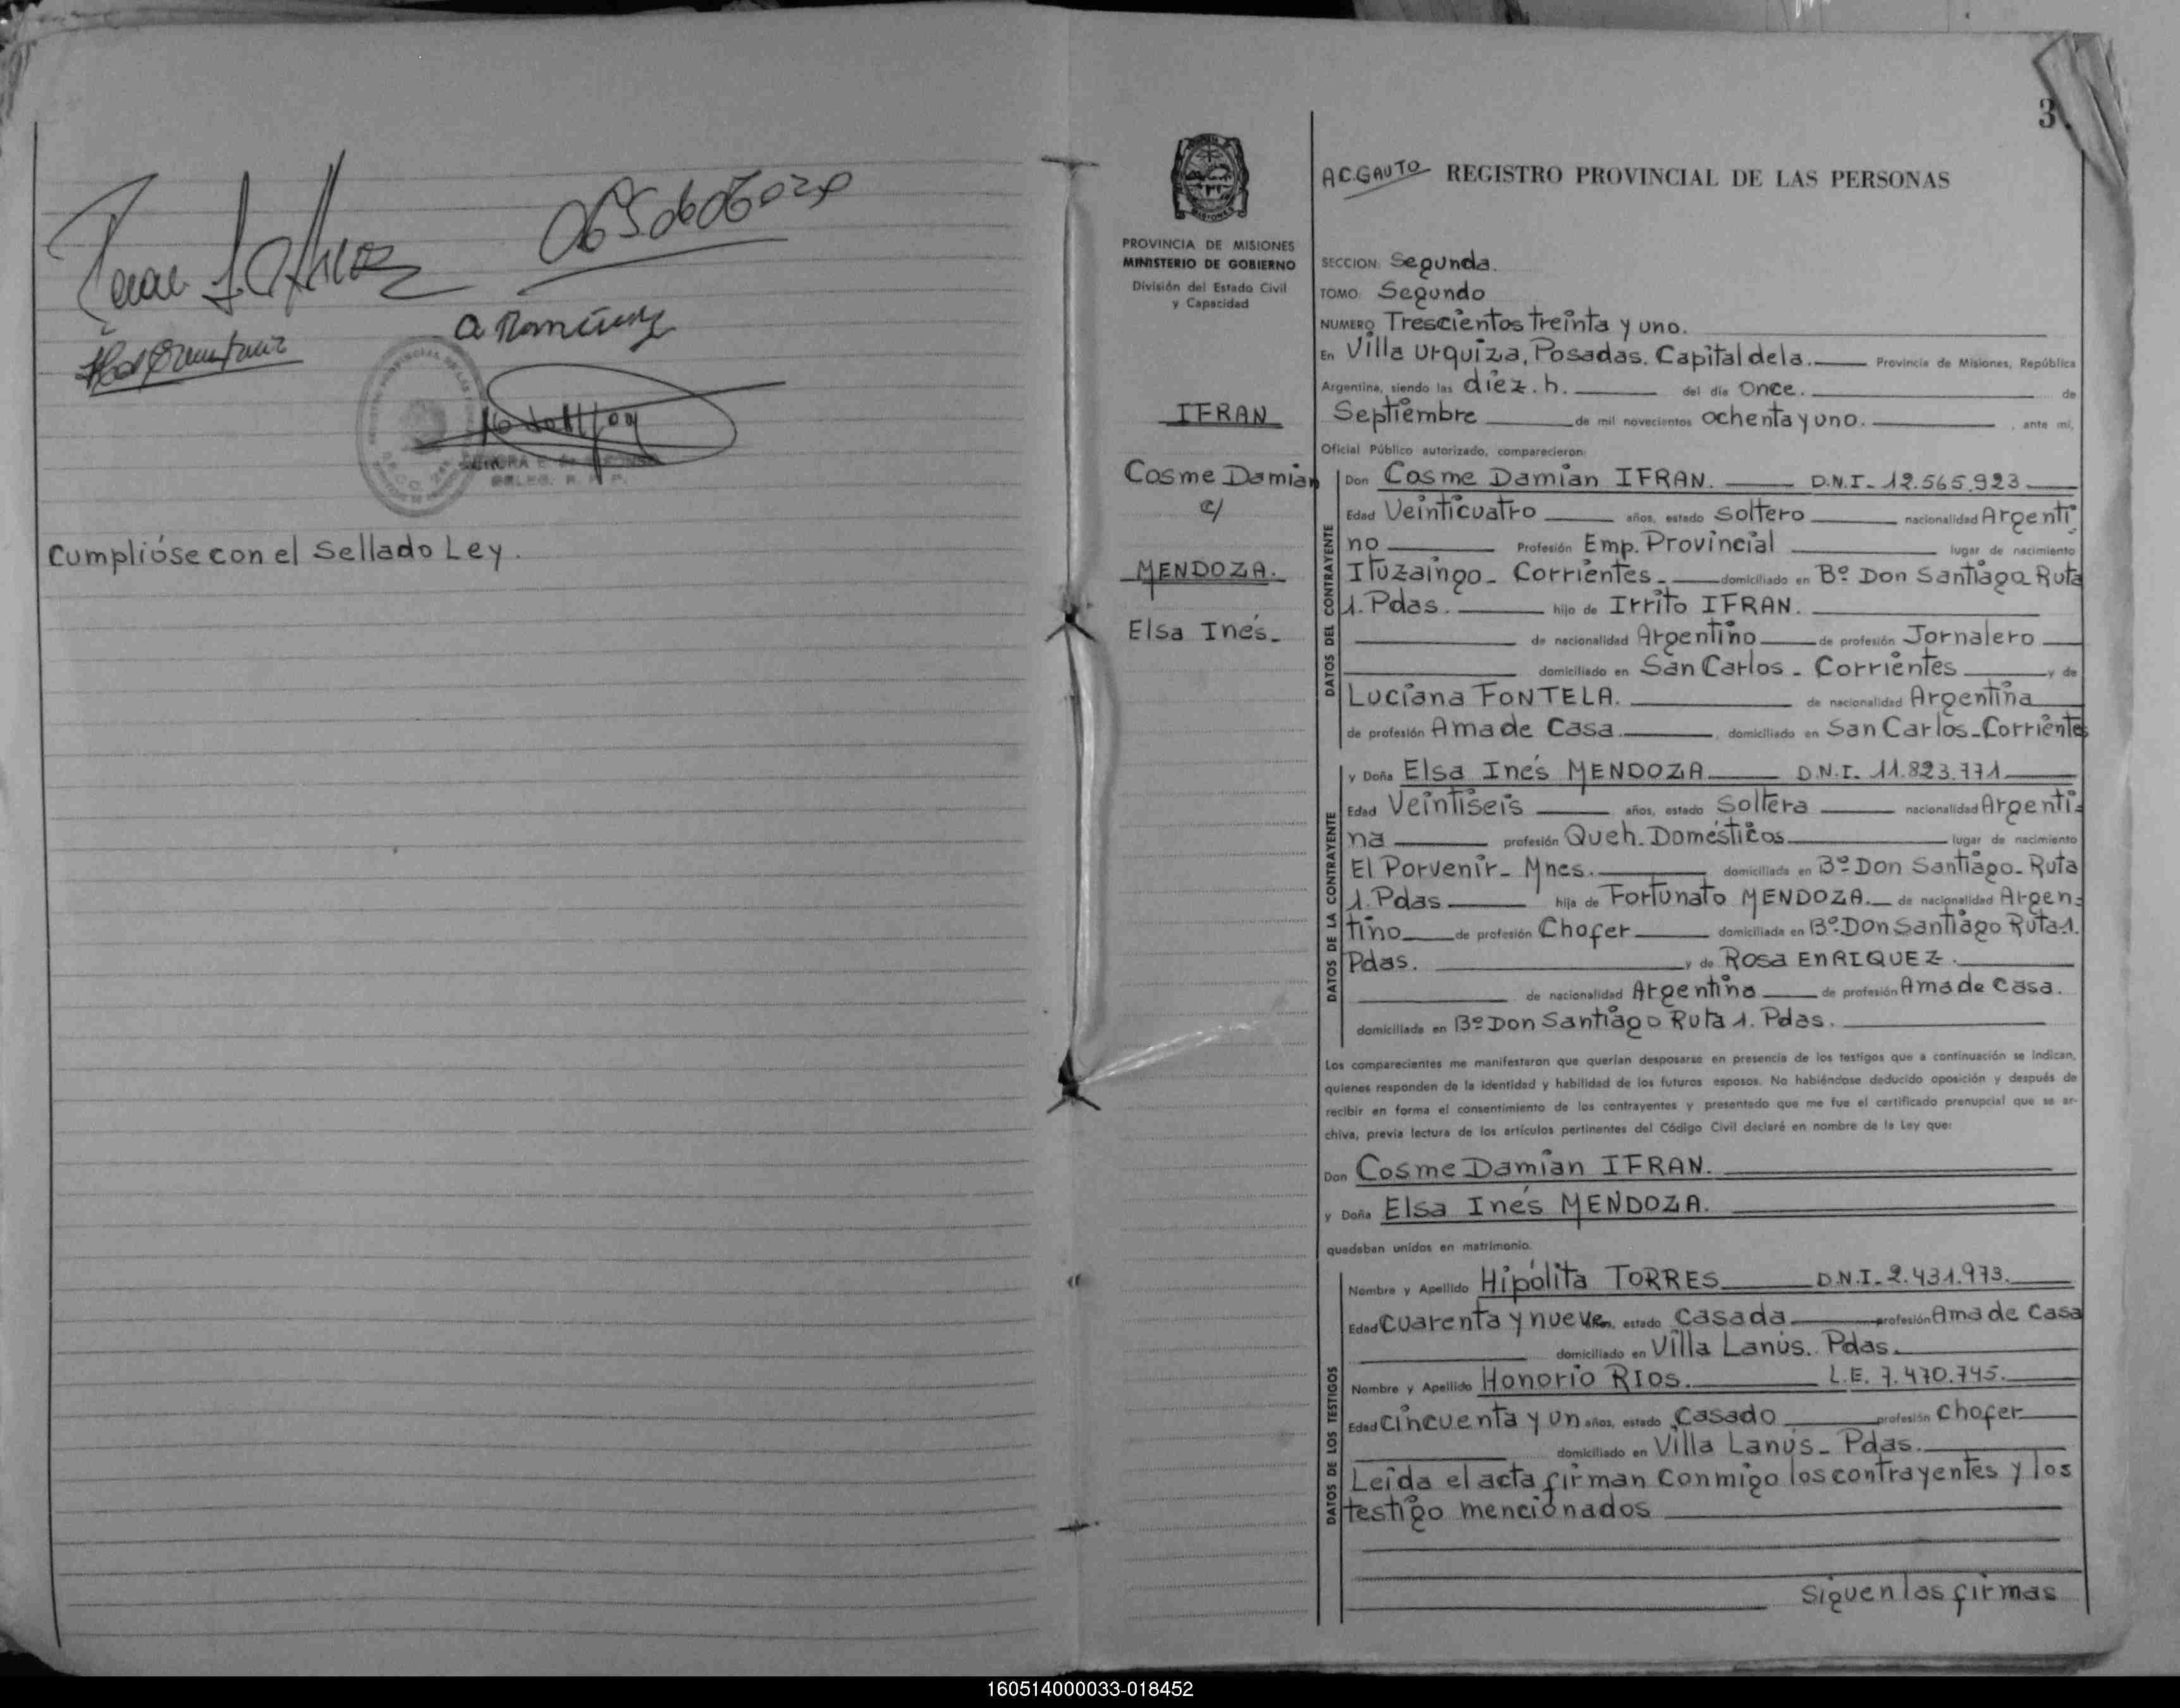 Cumplióse con el Sellado Ley.
3
MISIONES
PROVINCIA DE MISIONES
MINISTERIO DE GOBIERNO
División del Estado Civil
y Capacidad
IFRAN
Cosme Damian
c/
MENDOZA.
Elsa Inés_
A.C. GAUTO REGISTRO PROVINCIAL DE LAS PERSONAS
SECCION: Segunda.
TOMO: Segundo
NUMERO Trescientos treinta y uno.
En Villa Urquiza, Posadas. Capital de la. Provincia de Misiones, República
Argentina, siendo las diez. h. del día Once. de
Septiembre de mil novecientos ochenta y uno. , ante mí,
Oficial Público autorizado, comparecieron:
DATOS DEL CONTRAYENTE
Don Cosme Damian IFRAN. D.N.I_ 12.565.923
Edad Veinticuatro años, estado Soltero nacionalidad Argenti
no Profesión Emp. Provincial lugar de nacimiento
Ituzaingo_ Corrientes_ domiciliado en Bº Don Santiago Ruta
1. Pdas. hijo de Irrito IFRAN.
de nacionalidad Argentino de profesión Jornalero
domiciliado en San Carlos_ Corrientes y de
Luciana FONTELA. de nacionalidad Argentina
de profesión Ama de Casa. , domiciliado en San Carlos_Corrientes
DATOS DE LA CONTRAYENTE
y Doña Elsa Inés MENDOZA D.N.I. 11.823.771
Edad Veintiseis años, estado Soltera nacionalidad Argenti=
na profesión Queh. Domésticos lugar de nacimiento
El Porvenir_ Mnes. domiciliada en Bº Don Santiago_ Ruta
1. Pdas hija de Fortunato MENDOZA. de nacionalidad Argen=
tino de profesión Chofer domiciliada en Bº Don Santiago Ruta 1.
Pdas. y de Rosa ENRIQUEZ.
de nacionalidad Argentina de profesión Ama de Casa.
domiciliada en Bº Don Santiago Ruta 1. Pdas.
Los comparecientes me manifestaron que querían desposarse en presencia de los testigos que a continuación se indican,
quienes responden de la identidad y habilidad de los futuros esposos. No habiéndose deducido oposición y después de
recibir en forma el consentimiento de los contrayentes y presentado que me fue el certificado prenupcial que se ar-
chiva, previa lectura de los artículos pertinentes del Código Civil declaré en nombre de la Ley que:
Don Cosme Damian IFRAN.
y Doña Elsa Inés MENDOZA.
quedaban unidos en matrimonio.
DATOS DE LOS TESTIGOS
Nombre y Apellido Hipólita TORRES D.N.I_ 2.431.973.
Edad Cuarenta y nueve estado Casada profesión Ama de Casa
domiciliado en Villa Lanús. Pdas.
Nombre y Apellido Honorio RIOS. L.E. 7.470.745.
Edad Cincuenta y un años, estado Casado profesión Chofer
domiciliado en Villa Lanús_ Pdas.
Leida el acta firman conmigo los contrayentes y los
testigo mencionados
Siguen las firmas
160514000033-018452